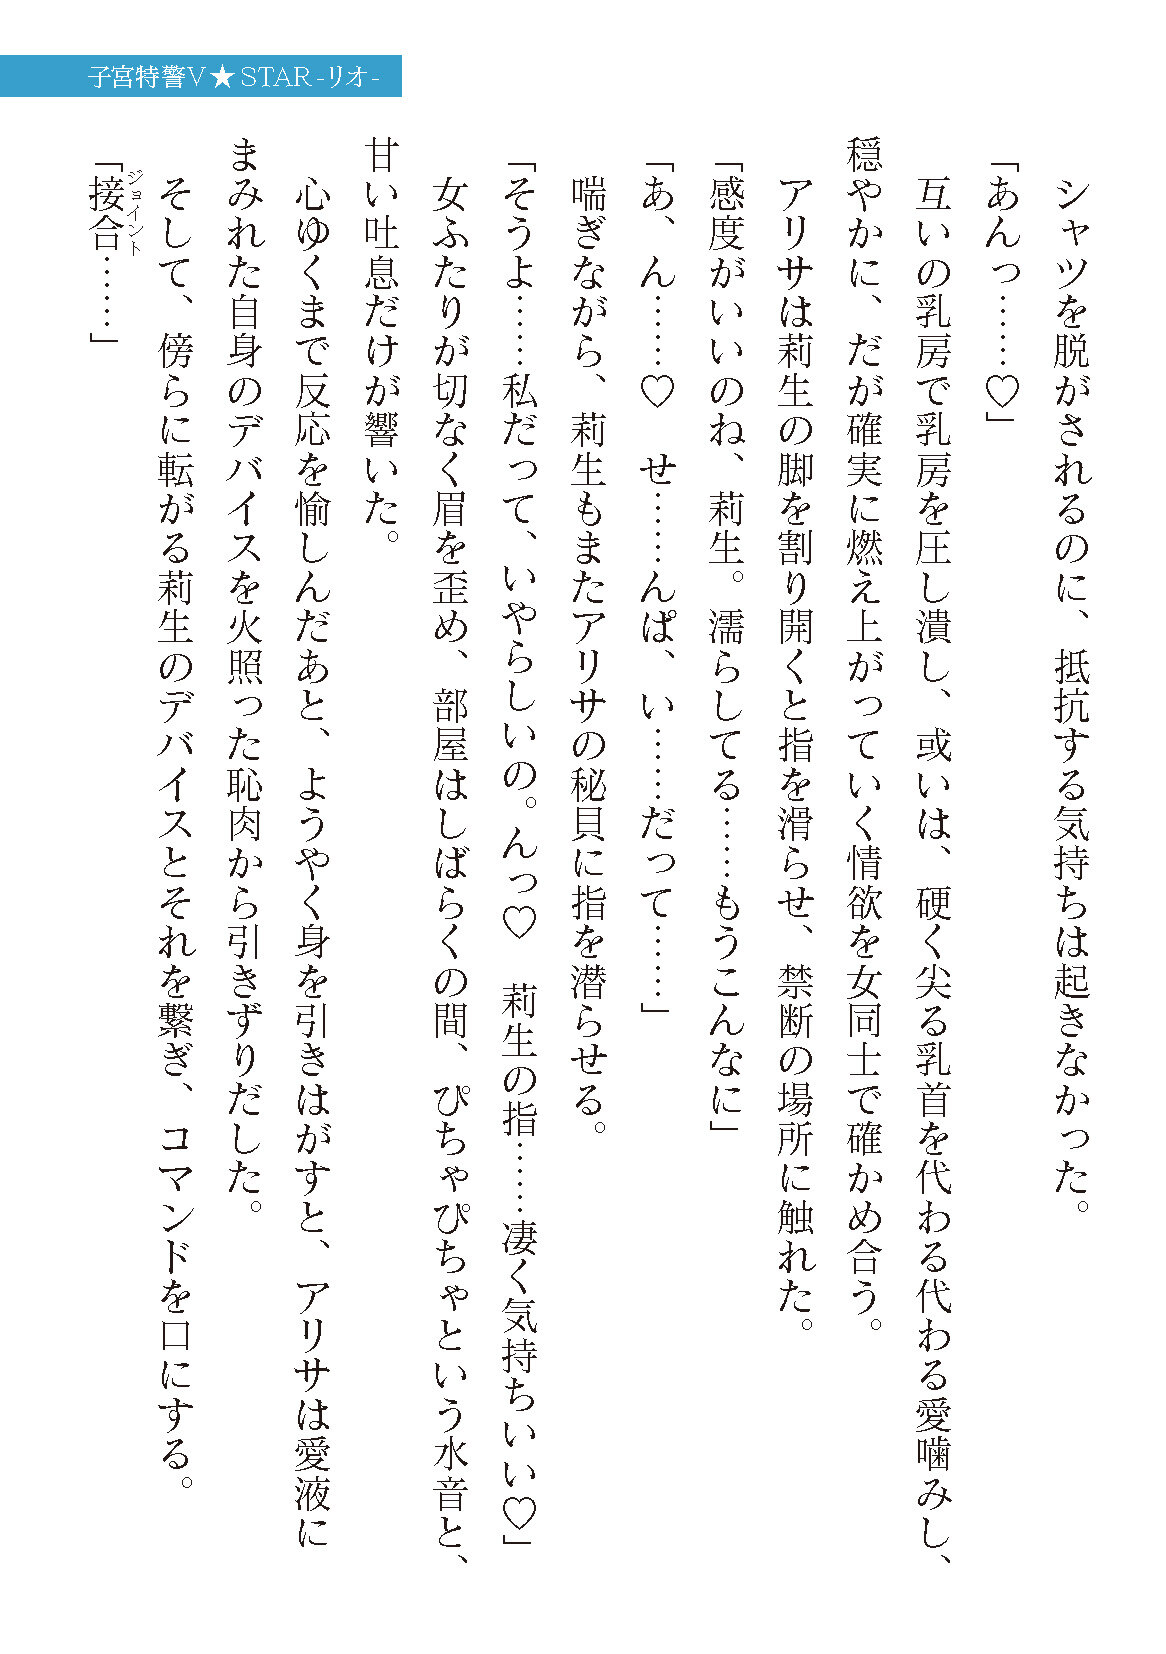 子宮特警V★STAR-リオ-
シャツを脱がされるのに、抵抗する気持ちは起きなかった。
「あんっ……♡」
互いの乳房で乳房を圧し潰し、或いは、硬く尖る乳首を代わる代わる愛噛みし、
穏やかに、だが確実に燃え上がっていく情欲を女同士で確かめ合う。
アリサは莉生の脚を割り開くと指を滑らせ、禁断の場所に触れた。
「感度がいいのね、莉生。濡らしてる……もうこんなに」
「あ、ん……♡　せ……んぱ、い……だって……」
喘ぎながら、莉生もまたアリサの秘貝に指を潜らせる。
「そうよ……私だって、いやらしいの。んっ♡　莉生の指……凄く気持ちいい♡」
女ふたりが切なく眉を歪め、部屋はしばらくの間、ぴちゃぴちゃという水音と、
甘い吐息だけが響いた。
心ゆくまで反応を愉しんだあと、ようやく身を引きはがすと、アリサは愛液に
まみれた自身のデバイスを火照った恥肉から引きずりだした。
そして、傍らに転がる莉生のデバイスとそれを繋ぎ、コマンドを口にする。
「接合……」
ジョイント